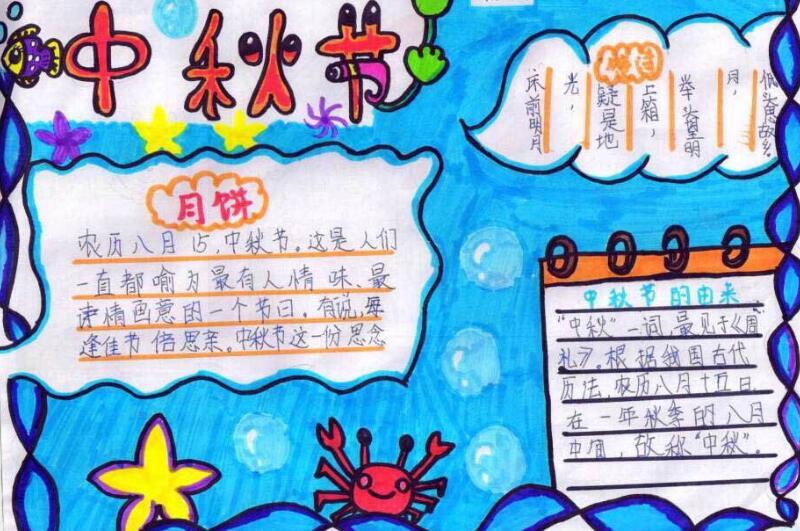 中秋节
床前明月
光，
疑是地
上箱，
举头望明
月，
低头思故乡。
月饼
农历八月15，中秋节。这是人们
一直都喻为最有人情味、最
诗情画意的一个节日。有说，每
逢佳节倍思亲。中秋节这一份思念
中秋节的由来
“中秋”一词，最见于《周
礼》。根据我国古代
历法，农历八月十五日
在一年秋季的八月
中间，故称“中秋”。